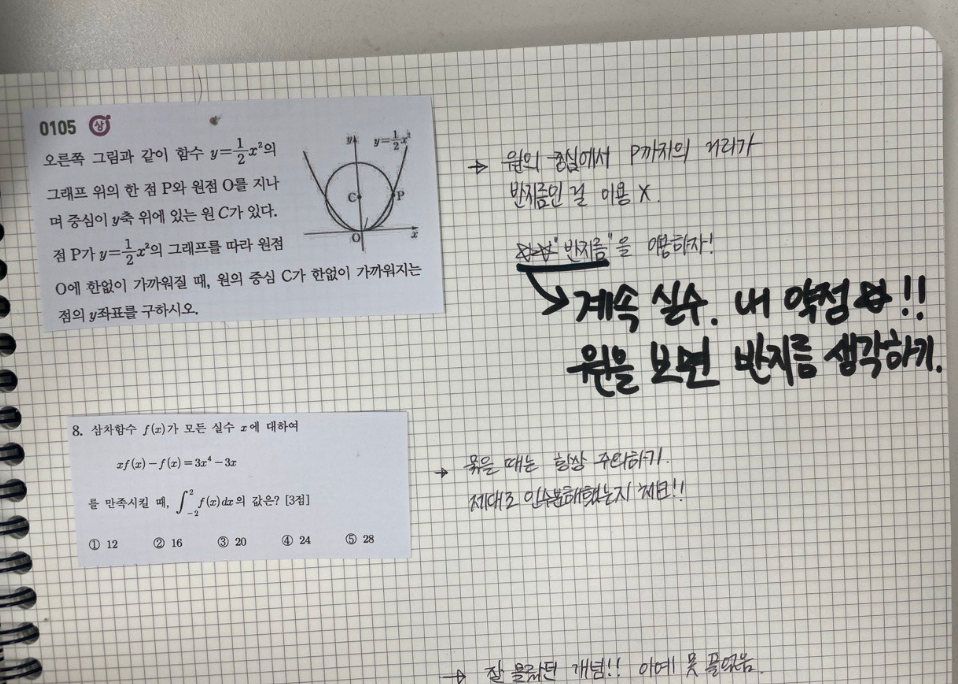 0105 상
오른쪽 그림과 같이 함수 y=1/2x²의
그래프 위의 한 점 P와 원점 O를 지나
며 중심이 y축 위에 있는 원 C가 있다.
점 P가 y=1/2x²의 그래프를 따라 원점
O에 한없이 가까워질 때, 원의 중심 C가 한없이 가까워지는
점의 y좌표를 구하시오.
y y=1/2x²
C P
O x
→ 원의 중심에서 P까지의 거리가
반지름인 걸 이용 X.
"반지름"을 이용하자!
계속 실수. 내 약점 !!
원을 보면 반지름 생각하기.
8. 삼차함수 f(x)가 모든 실수 x에 대하여
xf(x)-f(x)=3x⁴-3x
를 만족시킬 때, ∫₋₂² f(x)dx의 값은? [3점]
① 12 ② 16 ③ 20 ④ 24 ⑤ 28
→ 묶을 때는 항상 주의하기.
제대로 인수분해했는지 체크!!
→ 잘 몰랐던 개념!! 아예 못 풀었음.